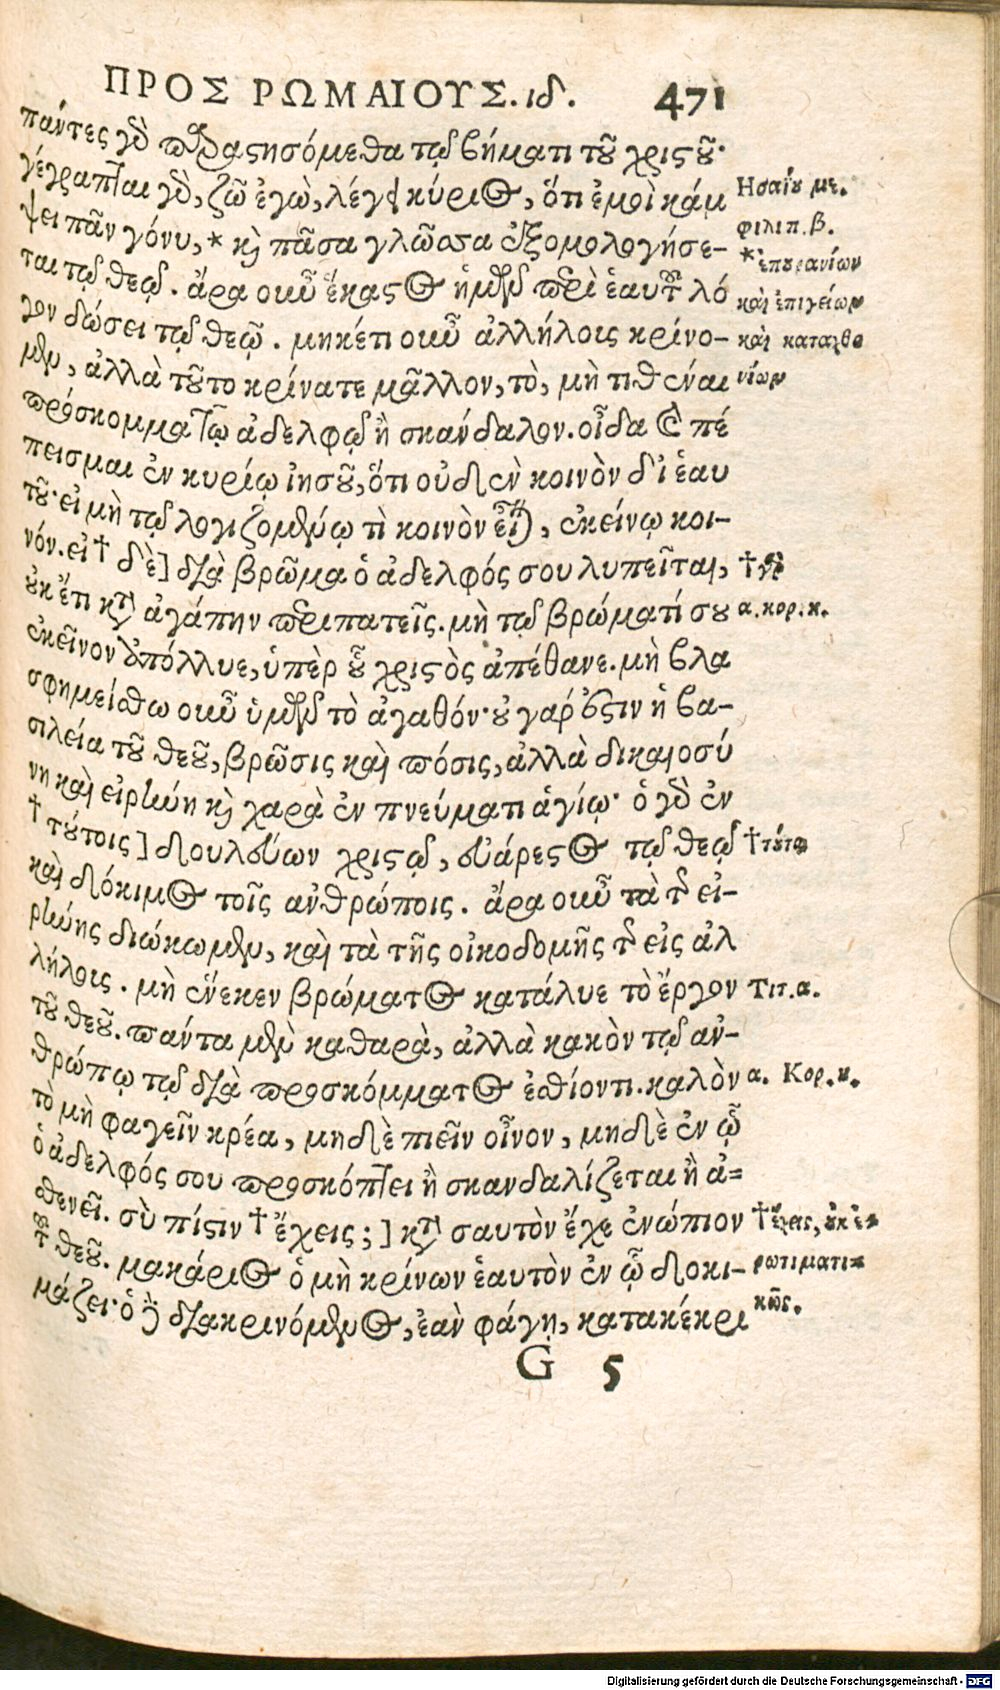 ΠΡΟΣ ΡΩΜΑΙΟΥΣ. ιδ. 471
πάντες γὰρ παραστησόμεθα τῷ βήματι τοῦ χριστοῦ·
γέγραπται γὰρ, ζῶ ἐγὼ, λέγει κύριος, ὅτι ἐμοὶ κάμ
ψει πᾶν γόνυ, * καὶ πᾶσα γλῶσσα ἐξομολογήσε-
ται τῷ θεῷ. ἄρα οὖν ἕκαστος ἡμῶν περὶ ἑαυτοῦ λό
γον δώσει τῷ θεῷ. μηκέτι οὖν ἀλλήλοις κρίνο-
μεν, ἀλλὰ τοῦτο κρίνατε μᾶλλον, τὸ, μὴ τιθέναι
πρόσκομμα τῷ ἀδελφῷ ἢ σκάνδαλον. οἶδα καὶ πέ
πεισμαι ἐν κυρίῳ ἰησοῦ, ὅτι οὐδὲν κοινὸν δι' ἑαυ
τοῦ· εἰ μὴ τῷ λογιζομένῳ τὶ κοινὸν εἶναι, ἐκείνῳ κοι-
νόν. εἰ † δὲ] διὰ βρῶμα ὁ ἀδελφός σου λυπεῖται,
οὐκ ἔτι κατὰ ἀγάπην περιπατεῖς. μὴ τῷ βρώματί σου
ἐκεῖνον ἀπόλλυε, ὑπὲρ οὗ χριστὸς ἀπέθανε. μὴ βλα
σφημείσθω οὖν ὑμῶν τὸ ἀγαθόν· οὐ γάρ ἐστιν ἡ βα-
σιλεία τοῦ θεοῦ, βρῶσις καὶ πόσις, ἀλλὰ δικαιοσύ
νη καὶ εἰρήνη καὶ χαρὰ ἐν πνεύματι ἁγίῳ· ὁ γὰρ ἐν
† τούτοις] δουλεύων χριστῷ, εὐάρεστος τῷ θεῷ
καὶ δόκιμος τοῖς ἀνθρώποις. ἄρα οὖν τὰ τῆς εἰ-
ρήνης διώκωμεν, καὶ τὰ τῆς οἰκοδομῆς τῆς εἰς ἀλ
λήλοις. μὴ ἕνεκεν βρώματος κατάλυε τὸ ἔργον
τοῦ θεοῦ. πάντα μὲν καθαρὰ, ἀλλὰ κακὸν τῷ ἀν-
θρώπῳ τῷ διὰ προσκόμματος ἐσθίοντι. καλὸν
τὸ μὴ φαγεῖν κρέα, μηδὲ πιεῖν οἶνον, μηδὲ ἐν ᾧ
ὁ ἀδελφός σου προσκόπτει ἢ σκανδαλίζεται ἢ ἀ=
σθενεῖ. σὺ πίστιν † ἔχεις;] κατὰ σαυτὸν ἔχε ἐνώπιον
τοῦ θεοῦ. μακάριος ὁ μὴ κρίνων ἑαυτὸν ἐν ᾧ δοκι-
μάζει· ὁ δὲ διακρινόμενος, ἐὰν φάγῃ, κατακέκρι
G 5
Ησαΐου με.
φιλιπ. β.
*ἐπουρανίων
καὶ ἐπιγείων
καὶ καταχθο
νίων
† γὰρ
α. κορ. κ.
† τούτῳ
Τιτ. α.
α. Κορ. κ.
† ἔχεις, οὐκ ἐ=
ρωτιματι=
κῶς.
Digitalisierung gefördert durch die Deutsche Forschungsgemeinschaft - DFG